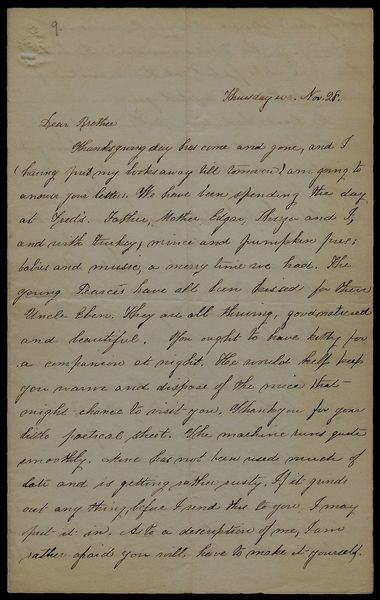 9.
Thursday eve. Nov. 28.
Dear Brother
Thanksgiving day has come and gone, and I
(having put my books away till tomorrow) am going to
answer your letter. We have been spending the day
at Fred's. Father, Mother, Edgar, and I,
and with turkey; mince and pumpkin pies;
babies and music, a merry time we had. The
young Pearces have all been kissed for their
Uncle Eben. They are all thriving, goodnatured
and beautiful. You ought to have kitty for
a companion at night. He would help keep
you warm and dispose of the mice that
might chance to visit you. Thank you for your
little poetical sheet. The machine runs quite
smoothly. Mine has not been used much of
late and is getting rather rusty. If it grinds
out any thing before I send this to you I may
put it in. As to a description of me, I am
rather afraid you will have to make it yourself.